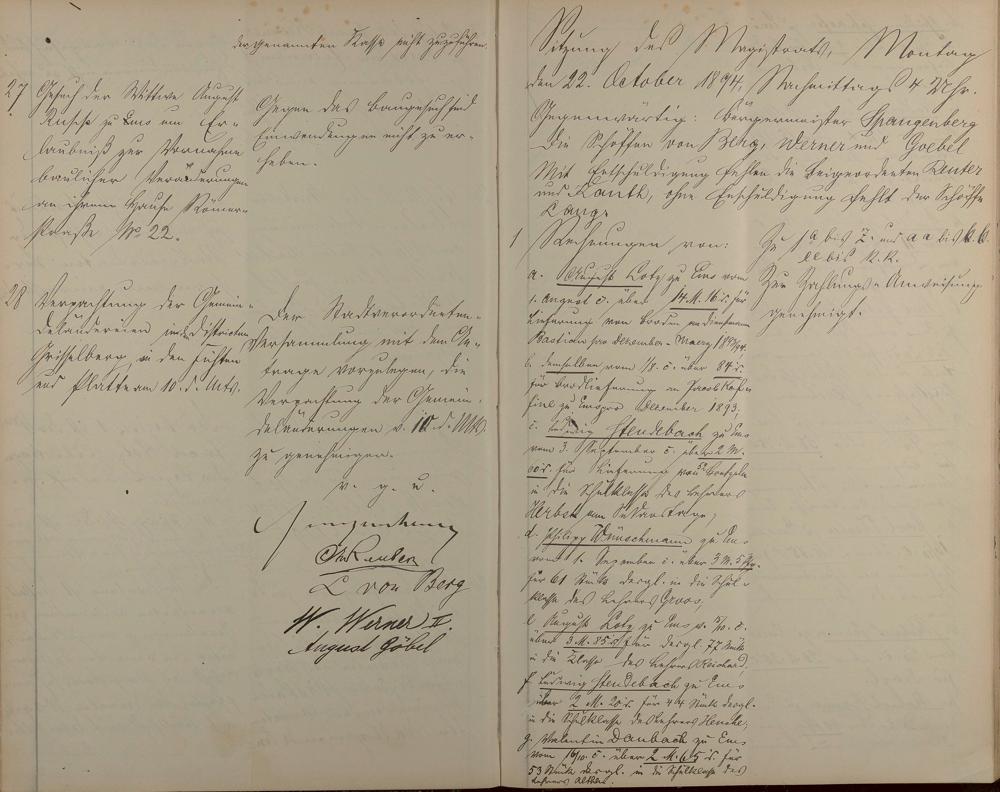 der genannten Kasse nicht zuzuführen.
27 Gesuch der Wittwe August
zu Ems um Er-
laubniß zur Vornahme
baulicher Veränderungen
an ihrem Hause Römer-
straße No 22.
Gegen das Baugesuch sind
Einwendungen nicht zu er-
heben.
28 Verpachtung der Gemein-
deländereien in den Distrikten
Grisselberg, in den Fichten
und Platte am 10. d. Mts.
Der Stadtverordneten-
Versammlung mit dem An-
trage vorzulegen, die
Verpachtung der Gemein-
deländereien v. 10. d. Mts.
zu genehmigen.
v. g. u.
Spangenberg
Kauter
L von Berg
W. Werner II.
August Göbel
Sitzung des Magistrats, Montag
den 22. October 1894, Nachmittags 4 Uhr.
Gegenwärtig: Bürgermeister Spangenberg
die Schöffen von Berg, Werner und Goebel
Mit Entschuldigung fehlen die Beigeordneten Kauter
und Kauth, ohne Entschuldigung fehlt der Schöffe
Lange
1 Rechnungen von:
a. August Lotz zu Ems vom
1. August c. über 14 M. 16 S. für
Lieferung von Brod an
Bastian pro Dezember - Maerz 1893/94.
b. demselben vom 1/8. c. über 84 S.
für Brodlieferung an Jacob
zu Ems pro Dezember 1893,
c. Ludwig Stendebach zu Ems
vom 3. September c. über 2 M.
60 S. für Lieferung von
in die Schulklasse des Lehrers
Herbst am
d. Philipp Wünschmann zu Ems
vom 1. September c. über 3 M. 5 Pf.
für 61 Stück desgl. in die Schul-
klasse des Lehrers Groos,
e August Lotz zu Ems v. c.
über 3 M. 85 S. für desgl. 77 Stück
in die Klasse des Lehrers Reichard,
f Ludwig Stendebach zu Ems
über 2 M. 20 S. für 44 Stück desgl.
in die Schulklasse des Lehrers Hencke,
g. Valentin Daubach zu Ems
vom 16/10. c. über 2 M. 65 S. für
53 Stück desgl. in die Schulklasse des
Lehrers
Zu 1 a bis z. und aa bis
ee bis k.k.
Zur Zahlungs-Anweisung
genehmigt.